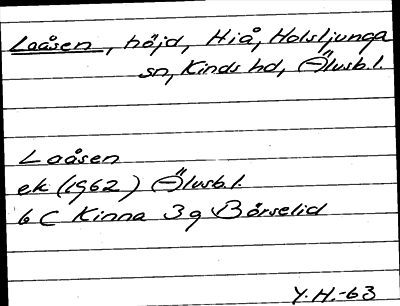 Laåsen, höjd, Hiå, Holsljunga
sn, Kinds hd, Älvsb.l.
Laåsen
ek (1962) Älvsb.l.
6 C Kinna 3 g Bårselid
Y.H.-63